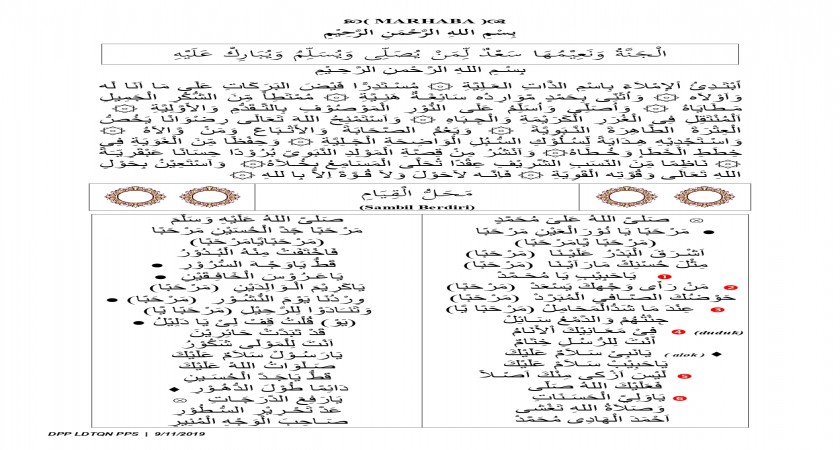 ( MARHABA )
بِسْمِ اللهِ الرَّحْمَنِ الرَّحِيْمِ
الْجَنَّةُ وَنَعِيْمُهَا سَعْدٌ لِّمَنْ يُصَلِّى وَيُسَلِّمُ وَيُبَارِكُ عَلَيْهِ
بِسْمِ اللهِ الرَّحْمنِ الرَّحِيْمِ
أَبْتَدِئُ الْإِمْلَاءَ بِاسْمِ الذَّاتِ الْعَلِيَّةِ ۞ مُسْتَدِرًّا فَيْضَ الْبَرَكَاتِ عَلَى مَا أَنَا لَهُ
وَأَوْلَاهُ ۞ وَأُثَنِّى بِحَمْدٍ مَوَارِدُهُ سَآئِغَةٌ هَنِيَّةٌ ۞ مُمْتَطِأً مِنَ الشُّكْرِ الْجَمِيْلِ
مَطَايَاهُ ۞ وَأُصَلِّى وَأُسَلِّمُ عَلَى النُّوْرِ الْمَوْصُوْفِ بِالتَّقَدُّمِ وَالْأَوَّلِيَّةِ ۞
الْمُنْتَقِلِ فِي الْغُرَرِ الْكَرِيْمَةِ وَالْجِبَاهِ ۞ وَأَسْتَمْنِحُ اللهَ تَعَالَى رِضْوَانًا يَخُصُّ
الْعِتْرَةَ الطَّاهِرَةَ النَّبَوِيَّةَ ۞ وَيَعُمُّ الصَّحَابَةَ وَالْأَتْبَاعَ وَمَنْ وَالَاهُ ۞
وَأَسْتَجْدِيْهِ هِدَايَةً لِسُلُوْكِ السُّبُلِ الْوَاضِحَةِ الْجَلِيَّةِ ۞ وَحِفْظًا مِنَ الْغَوَايَةِ فِى
خِطَطِ الْخَطَأِ وَخُطَاهُ ۞ وَأَنْشُرُ مِنْ قِصَّةِ الْمَوْلِدِ النَّبَوِيِّ بُرُوْدًا حِسَانًا عَبْقَرِيَّةً
۞ نَاظِمًا مِنَ النَّسَبِ الشَّرِيْفِ عِقْدًا تُحَلَّى الْمَسَامِعُ بِحُلَاهُ ۞ وَأَسْتَعِيْنُ بِحَوْلِ
اللهِ تَعَالَى وَقُوَّتِهِ الْقَوِيَّةِ ۞ فَإِنَّهُ لَاحَوْلَ وَلَا قُوَّةَ إِلَّا بِاللهِ ۞
مَحَلُّ الْقِيَامِ
(Sambil Berdiri)
صَلَّىَ اللهُ عَلَىَ مُحَمَّدٍ صَلَّىَ اللهُ عَلَيْهِ وَسَلَّمَ
● مَرْحَبًا يَا نُوْرَ الْعَيْنِ مَرْحَبًا مَرْحَبًا جَدَّ الْحُسَيْنِ مَرْحَبًا
(مَرْحَبًا يَامَرْحَبًا) (مَرْحَبًايَامَرْحَبًا)
أَشْرَقَ الْبَدْرُ عَلَيْنَا (مَرْحَبًا) فَاخْتَفَتْ مِنْهُ الْبُدُوْرُ
مِثْلَ حُسْنِكَ مَارَأَيْنَا (مَرْحَبًا) قَطُّ يَاوَجْهَ السُّرُوْرِ ●
1 يَاحَبِيْبُ يَا مُحَمَّدُ يَاعَرُوْسَ الْخَافِقَيْنِ ●
2 مَنْ رَأَى وَجْهَكَ يَسْعَدُ (مَرْحَبًا) يَاكَرِيْمَ الْوَالِدَيْنِ (مَرْحَبًا)
حَوْضُكَ الصَّافِي الْمُبَرَّدُ (مَرْحَبًا) وِرْدُنَا يَوْمَ النُّشُوْرِ (مَرْحَبًا) ●
3 عِنْدَ مَا شَدُّالْمَحَامِلْ (مَرْحَبًا يَا) وَتَنَادَوْا لِلرَّحِيْلِ (مَرْحَبًا يَا)
جِئْتُهُمْ وَالدَّمْعُ سَائِلْ (يَوْ) قُلْتُ قِفْ لِىْ يَا دَلِيْلُ ●
(duduk) 4 فِىْ مَعَانِيْكَ الْأَنَامُ قَدْ تَبَدَّتْ حَائِرِيْنَ
أَنْتَ لِلرُّسْلِ خِتَامٌ أَنْتَ لِلْمَوْلَى شَكُوْرُ
◆ (alok) يَانَبِىْ سَلَامٌ عَلَيْكَ يَارَسُوْلْ سَلَامٌ عَلَيْكَ
يَاحَبِيْبْ سَلَامٌ عَلَيْكَ صَلَوَاتُ اللهِ عَلَيْكَ
5 لَيْسَ أَزْكَى مِنْكَ أَصْلًا قَطُّ يَاجَدَّ الْحُسَيْنِ
فَعَلَيْكَ اللهُ صَلَّى دَائِمًا طُوْلَ الدُّهُوْرِ ◆
6 يَاوَلِىَّ الْحَسَنَاتِ يَارَفِعَ الدَّرَجَاتِ
وَصَلَاةُ اللهِ تَغْشَى عَدَّ تَحْرِيْرِ السُّطُوْرِ
أَحْمَدَ الْهَادِى مُحَمَّدْ صَاحِبَ الْوَجْهِ الْمُنِيْرِ
DPP LDTQN PPS | 9/11/2019